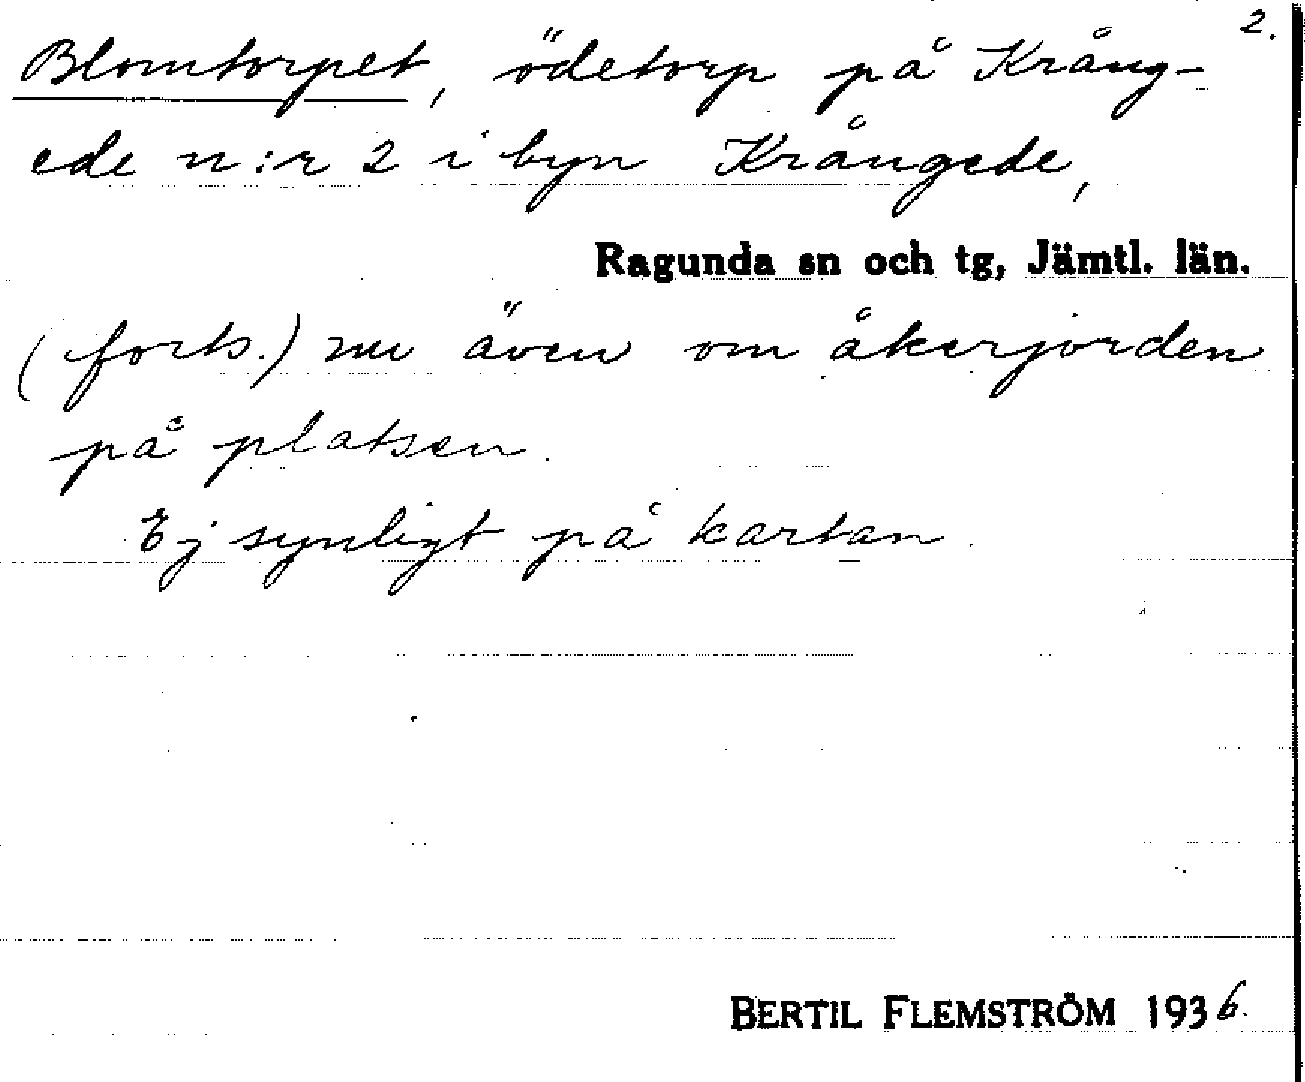 2.
Blomtorpet, ödetorp på Krång-
ede n:r 2 i byn Krångede,
Ragunda sn och tg, Jämtl. län.
(forts.) nu även om åkerjorden
på platsen.
Ej synligt på kartan.
BERTIL FLEMSTRÖM 1936.